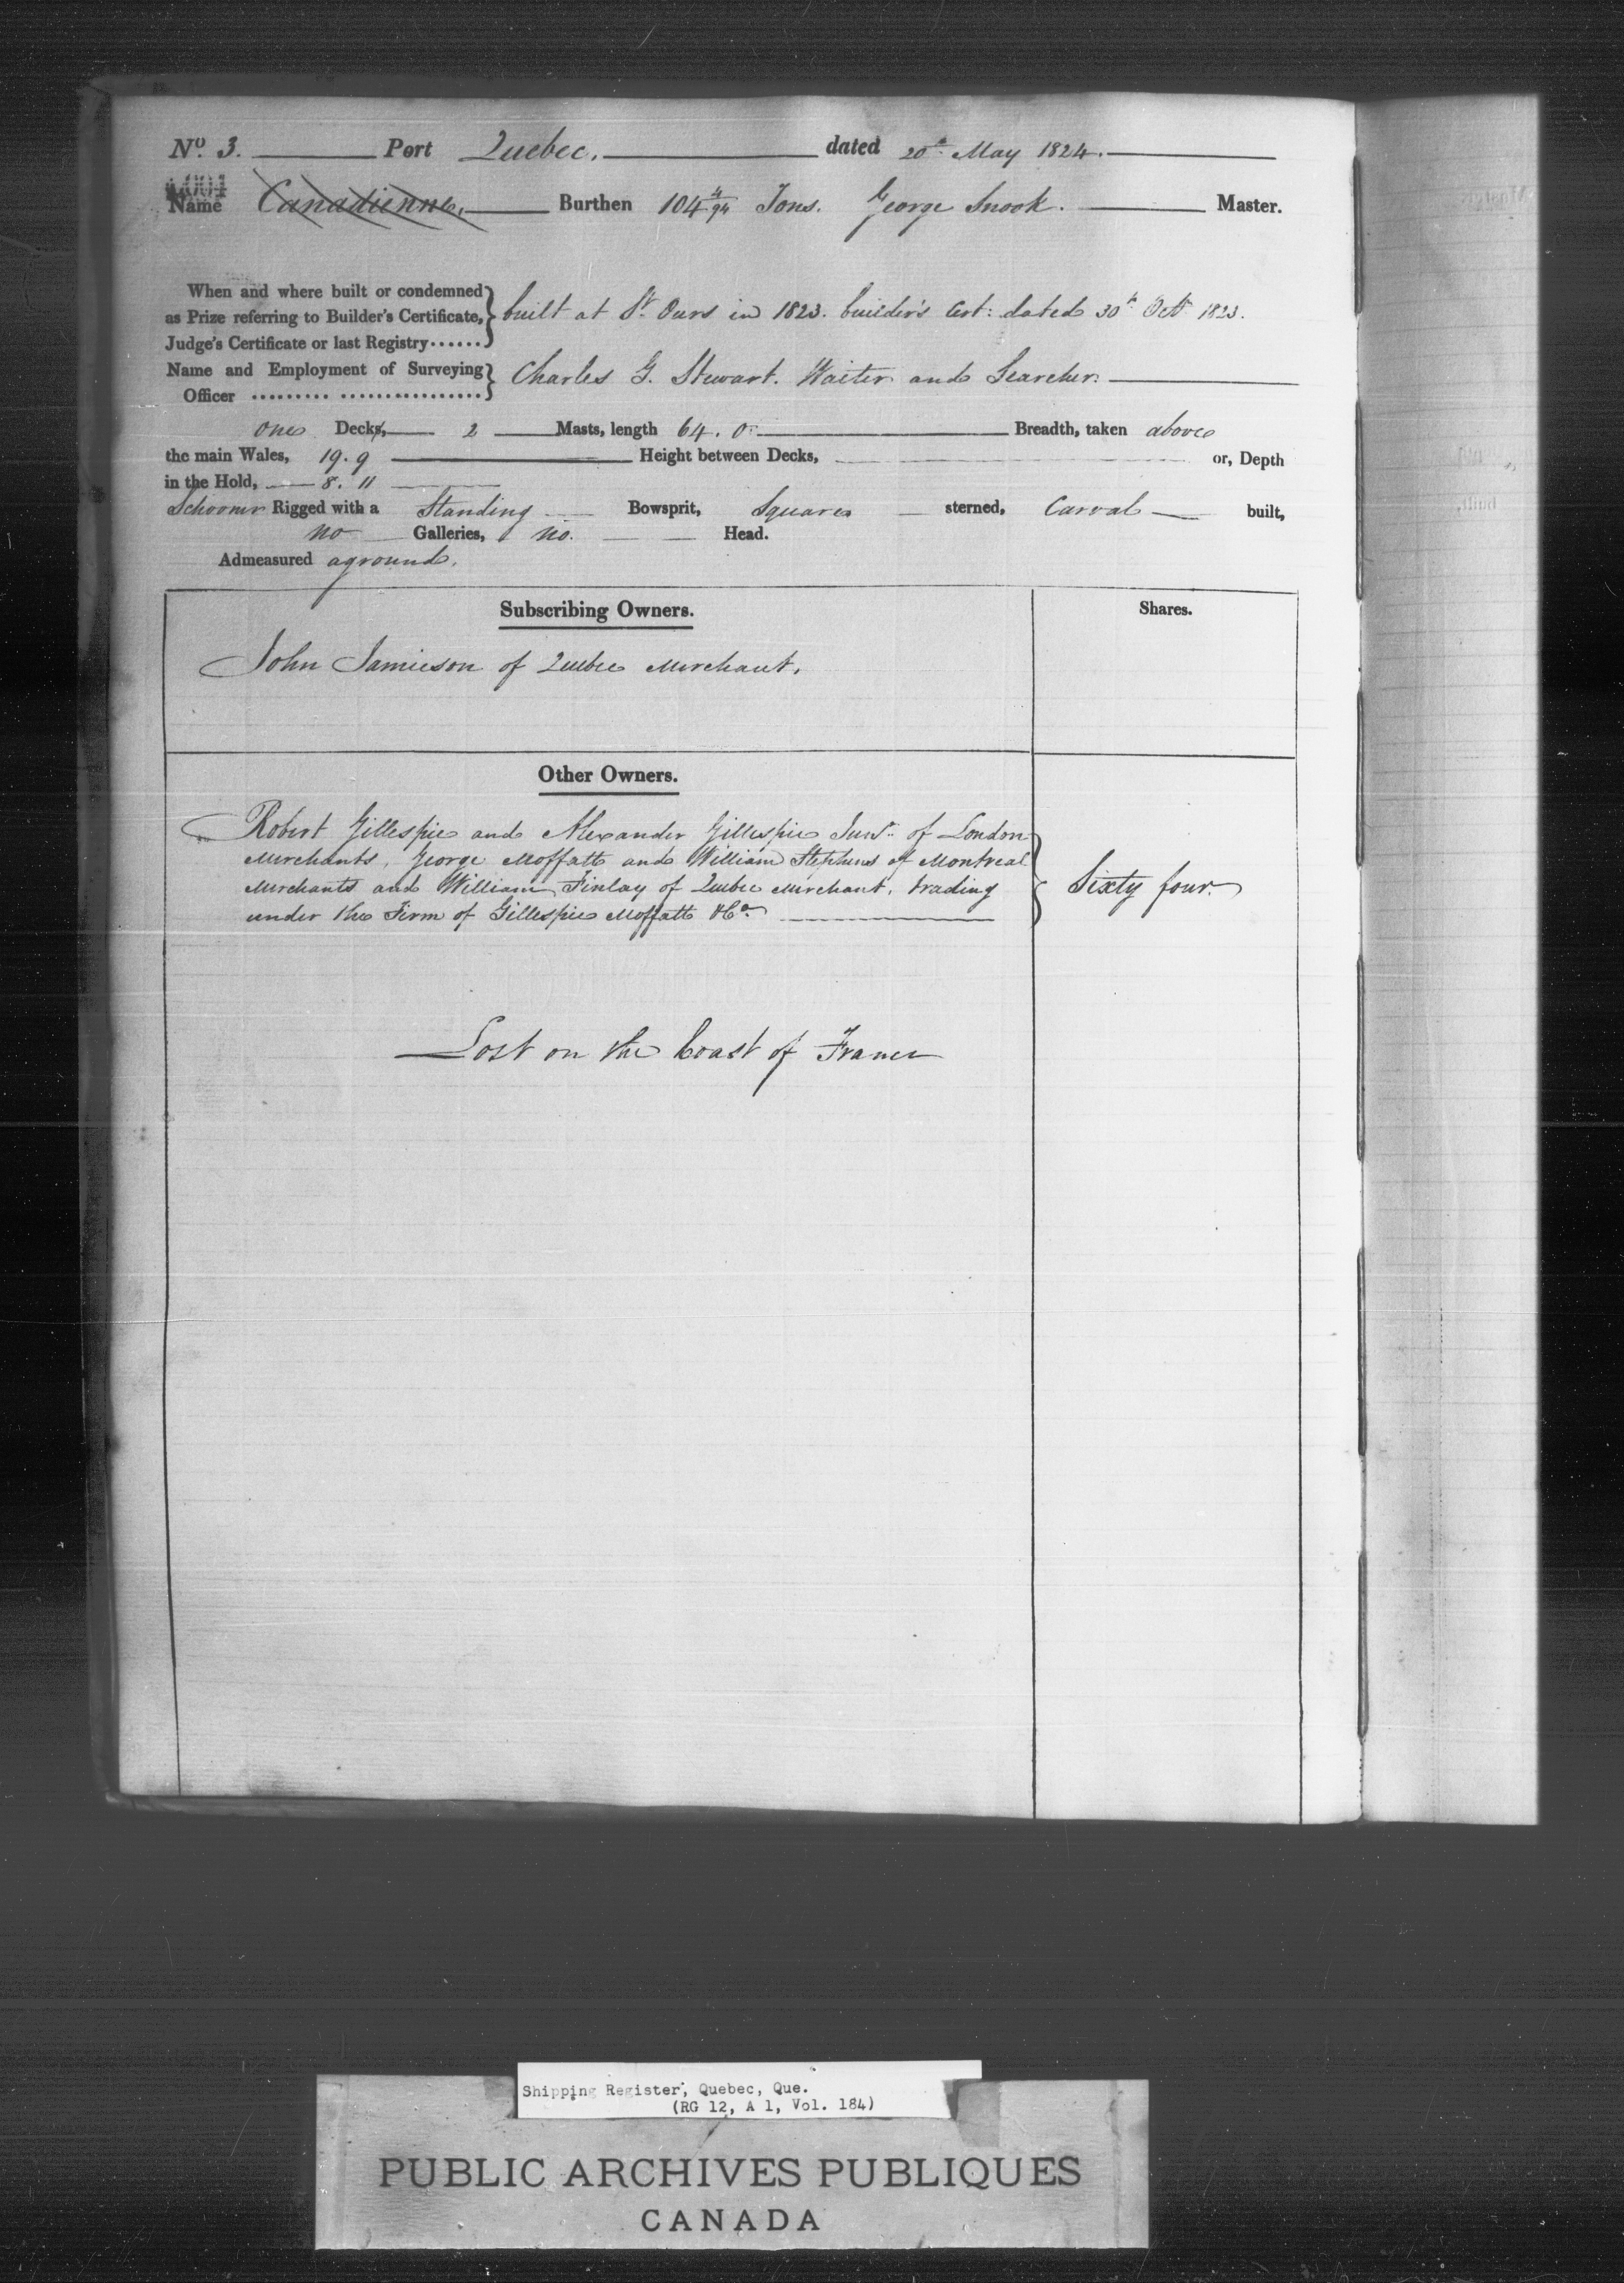 No. 3. Port Quebec, dated 20th May 1824.
Name Canadienne, Burthen 104 4/94 Tons. George Snook. Master.
When and where built or condemned
as Prize referring to Builder's Certificate, built at St. Ours in 1823. builder's Cert: dated 30th Octr 1823.
Judge's Certificate or last Registry......
Name and Employment of Surveying Charles G. Stewart. Waiter and Searcher.
Officer
one Decks, 2 Masts, length 64. 0 Breadth, taken above
the main Wales, 19. 9 Height between Decks, or, Depth
in the Hold, 8. 11
Schooner Rigged with a Standing Bowsprit, Square sterned, Carval built,
no Galleries, no. Head.
Admeasured aground.
Subscribing Owners. Shares.
John Jamieson of Quebec Merchant.
Other Owners.
Robert Gillespie and Alexander Gillespie Junr. of London
Merchants, George Moffatt and William Stephens of Montreal
Merchants and William Finlay of Quebec Merchant, trading Sixty four.
under the Firm of Gillespie Moffatt & Co.
Lost on the Coast of France
Shipping Register, Quebec, Que.
(RG 12, A 1, Vol. 184)
PUBLIC ARCHIVES PUBLIQUES
CANADA